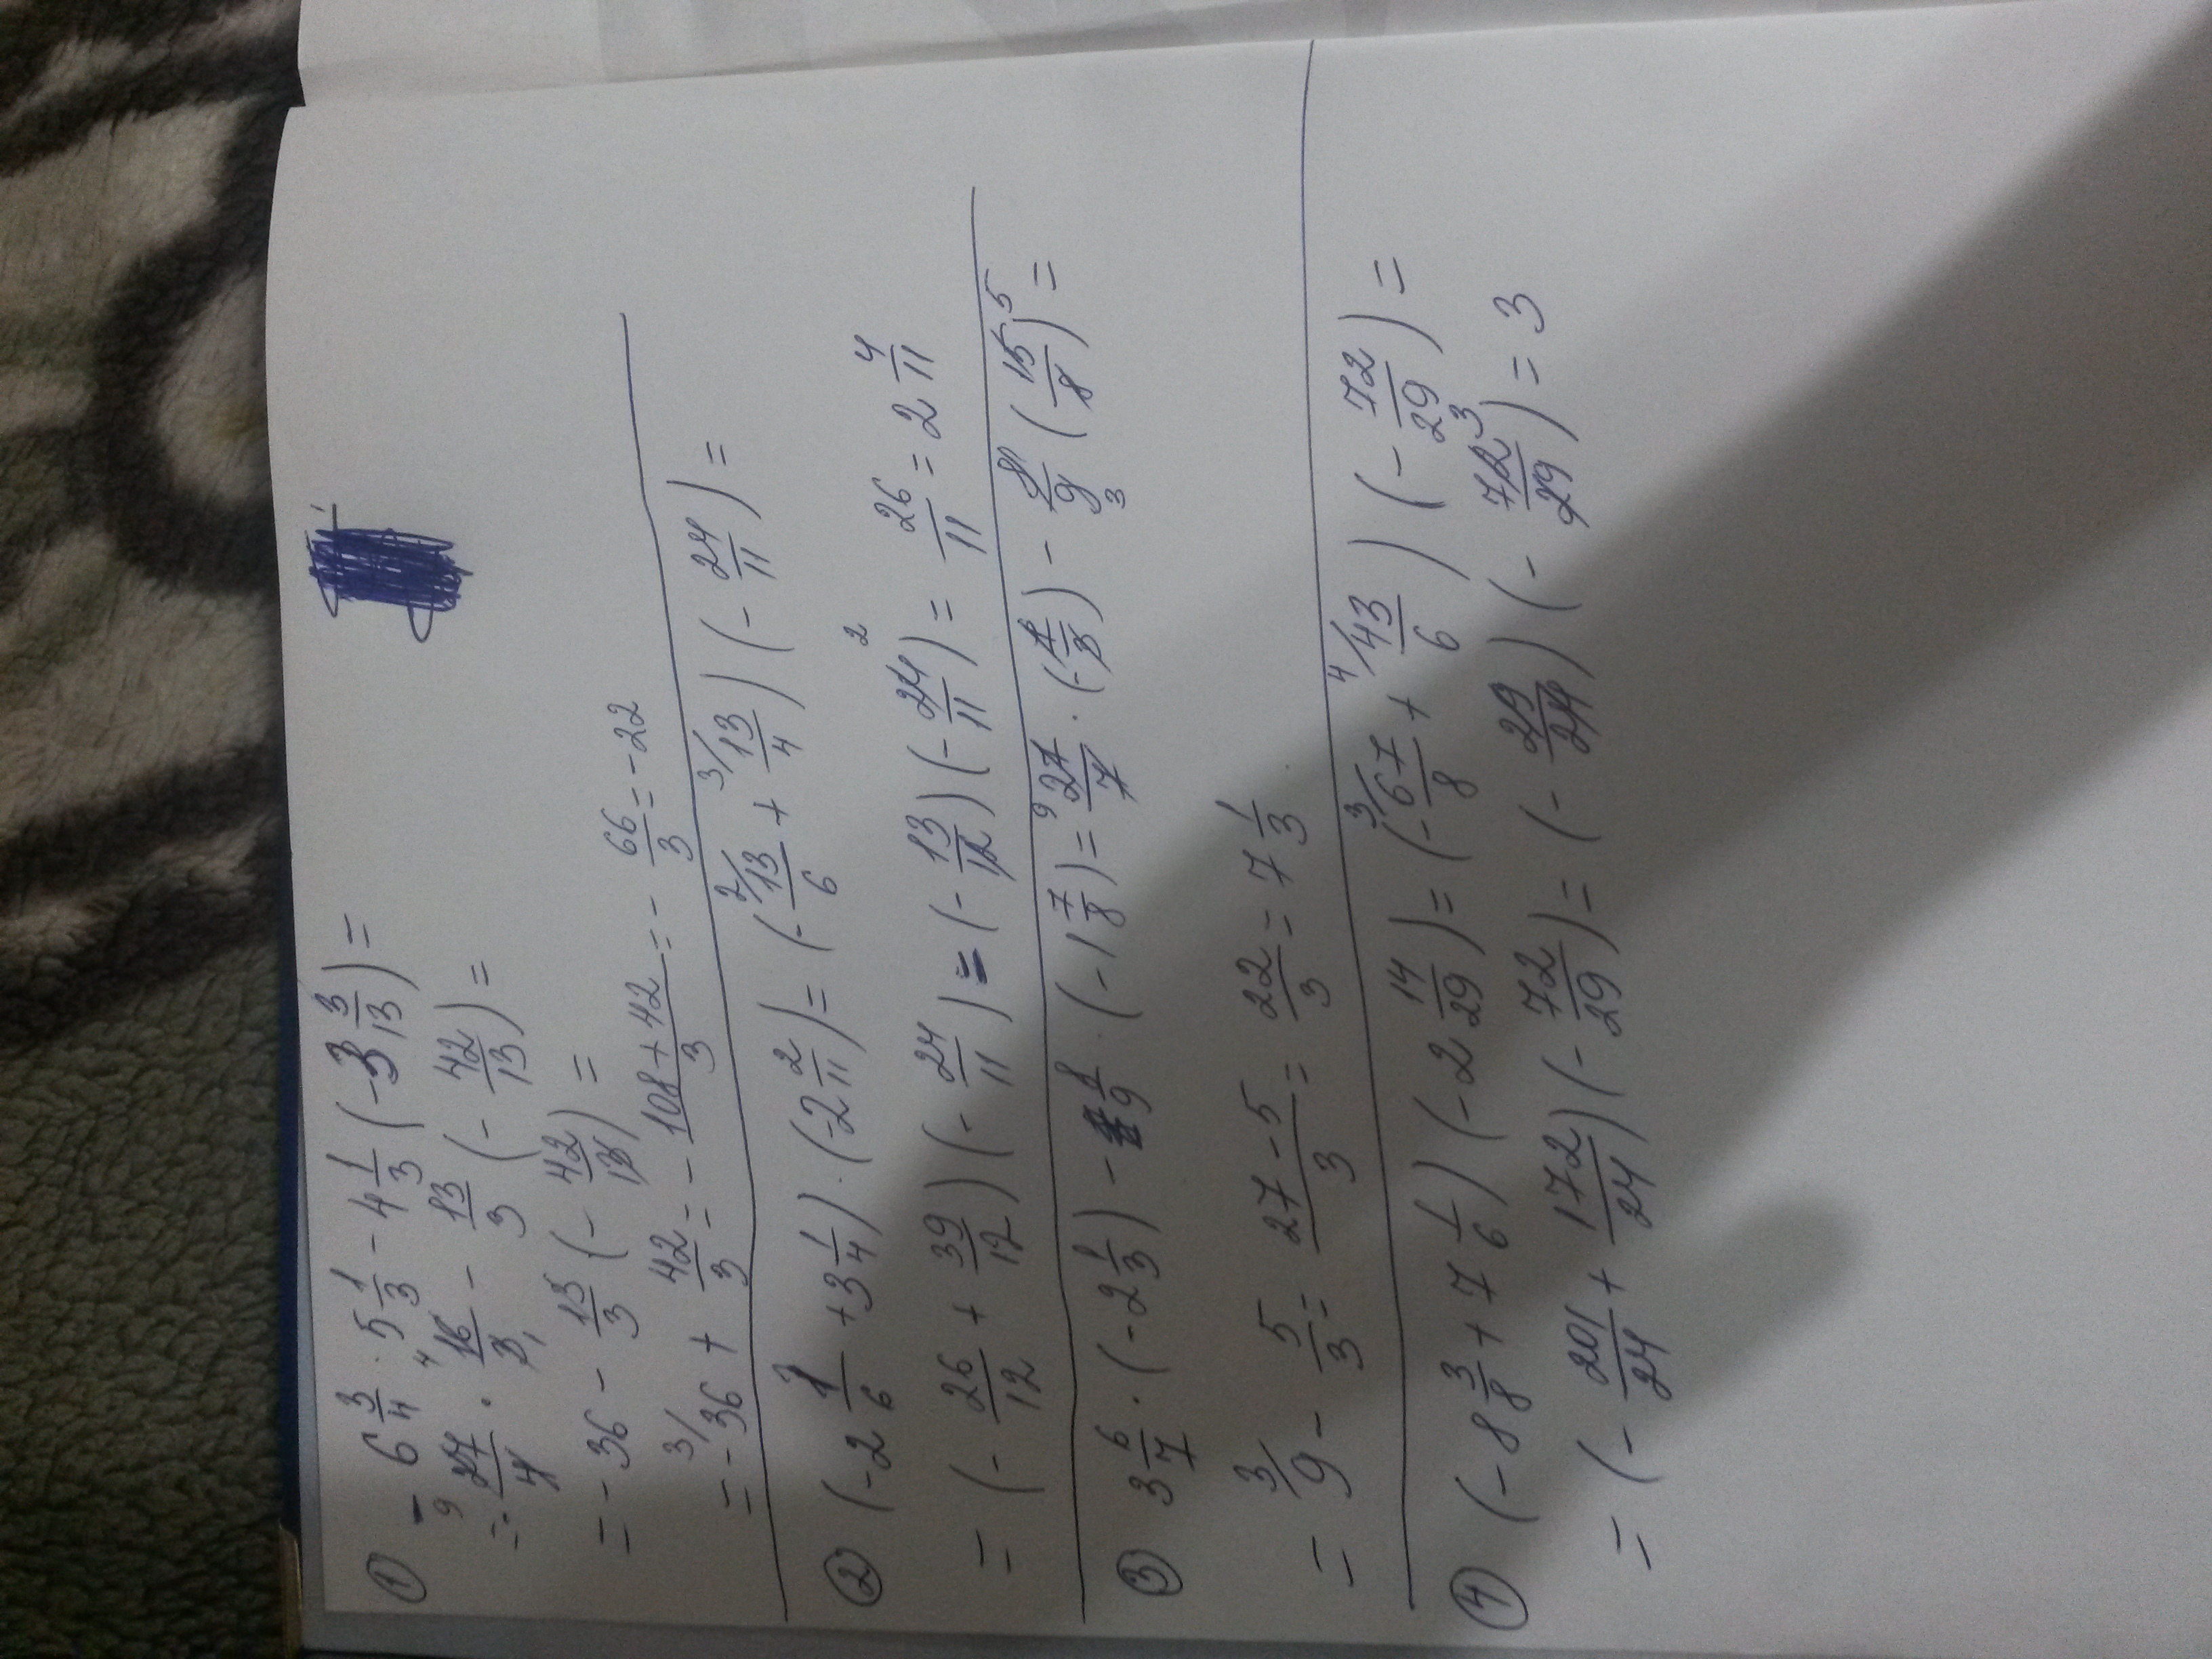 ① - 6 3/4 · 5 1/3 - 4 1/3 (-3 3/13) =
= - 27/4 · 16/3 - 13/3 (- 42/13) =
= - 36 - 13/3 (- 42/13) =
= - 36 + 42/3 = - 108 + 42/3 = - 66/3 = - 22
② (-2 1/6 + 3 1/4) · (-2 2/11) = (- 13/6 + 13/4) (- 24/11) =
= (- 26/12 + 39/12) (- 24/11) = (- 13/12) (- 24/11) = 26/11 = 2 4/11
③ 3 6/7 · (-2 1/3) - 8/9 · (-1 7/8) = 27/7 · (- 7/3) - 8/9 (15/8) =
= 9 - 5/3 = 27 - 5/3 = 22/3 = 7 1/3
④ (- 8 3/8 + 7 1/6) (- 2 14/29) = (- 67/8 + 43/6) (- 72/29) =
= (- 201/24 + 172/24) (- 72/29) = (- 29/24) (- 72/29) = 3